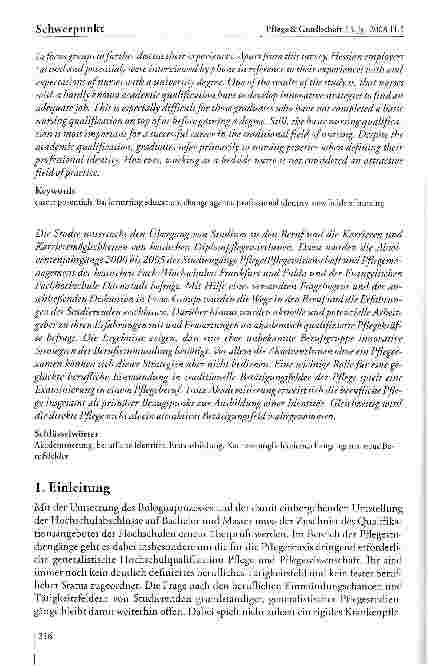 Schwerpunkt Pflege & Gesellschaft 13. Jg. 2008 H.3
in focus groups to further discuss their experiences. Apart from this survey, Hessian employers
(actual and potential) were interviewed by phone in reference to their experiences with and
expectations of nurses with a university degree. One of the results of the study is, that nurses
with a hardly known academic qualification have to develop innovative strategies to find an
adequate job. This is especially difficult for those graduates who have not completed a basic
nursing qualification on top of or before gaining a degree. Still, the basic nursing qualifica-
tion is most important for a successful career in the traditional field of nursing. Despite the
academic qualification, graduates refer primarily to nursing practice when defining their
professional identity. However, working as a bedside nurse is not considered an attractive
field of practice.
Keywords
career potentials, Bachelor nursing education, change agents, professional identity, new fields of nursing
Die Studie untersucht den Übergang vom Studium in den Beruf und die Karrieren und
Karrieremöglichkeiten von hessischen Diplompflegewirtinnen. Dazu wurden die Absol-
ventenjahrgänge 2000 bis 2005 der Studiengänge Pflege/Pflegewissenschaft und Pflegema-
nagement der hessischen Fachhochschulen Frankfurt und Fulda und der Evangelischen
Fachhochschule Darmstadt befragt. Mit Hilfe eines versandten Fragebogens und der an-
schließenden Diskussion in Focus Groups wurden die Wege in den Beruf und die Erfahrun-
gen der Studierenden erschlossen. Darüber hinaus wurden aktuelle und potenzielle Arbeit-
geber zu ihren Erfahrungen mit und Erwartungen an akademisch qualifizierte Pflegekräf-
te befragt. Die Ergebnisse zeigen, dass eine eher unbekannte Berufsgruppe innovative
Strategien der Berufseinmündung benötigt. Vor allem die AbsolventInnen ohne ein Pflegeex-
amen können sich dieser Strategien aber nicht bedienen. Eine wichtige Rolle für eine ge-
glückte berufliche Einmündung in traditionelle Betätigungsfelder der Pflege spielt eine
Examinierung in einem Pflegeberuf. Trotz Akademisierung erweist sich die berufliche Pfle-
ge insgesamt als primärer Bezugspunkt zur Ausbildung einer Identität. Gleichzeitig wird
die direkte Pflege nicht als ein attraktives Betätigungsfeld wahrgenommen.
Schlüsselwörter
Akademisierung, berufliche Identität, Erstausbildung, Karrieremöglichkeiten, change agents, neue Be-
rufsfelder
1. Einleitung
Mit der Umsetzung des Bolognaprozesses und der damit einhergehenden Umstellung
der Hochschulabschlüsse auf Bachelor und Master muss der Zuschnitt des Qualifika-
tionsangebotes der Hochschulen erneut überprüft werden. Im Bereich der Pflegestu-
diengänge geht es dabei insbesondere um die für die Pflegepraxis dringend erforderli-
che generalistische Hochschulqualifikation Pflege und Pflegewissenschaft. Ihr sind
immer noch kein deutlich definiertes berufliches Tätigkeitsfeld und kein fester beruf-
licher Status zugeordnet. Die Frage nach den beruflichen Einmündungschancen und
Tätigkeitsfeldern von Studierenden grundständiger, generalistischer Pflegestudien-
gänge bleibt damit weiterhin offen. Dabei spielt nicht zuletzt ein rigides Krankenpfle-
216